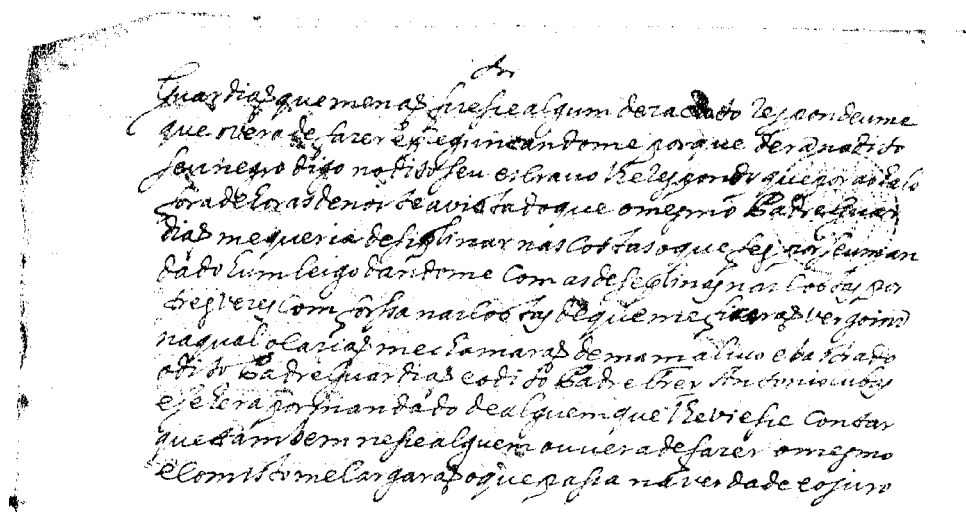 Guardiaõ que me naõ fisese algum de zacato Respondeume
que o vera de fazer porque
seu negro digo no dito seu escravo lhe Respondi que por achalo
fora de horas de noite avistado que o mesmo Padre Guar
diaõ me queria desiplinar nas Costas o que fes por seu man
dado hum leigo dandome Com as deseplinas nas Costas por
tres vezes Com forssa nas Costas de que me ficaraõ vergoins
na qual olariaõ me chamaraõ de mamaluco e bastardo
o dito Padre Guardiaõ e o dito Padre Frei Antonio
e se hera por mandado de alguem que lhe viese Contar
que tambem nese alguem ouvera de fazer o mesmo
e Com isto me largaraõ o que pasa na verdade e o juro